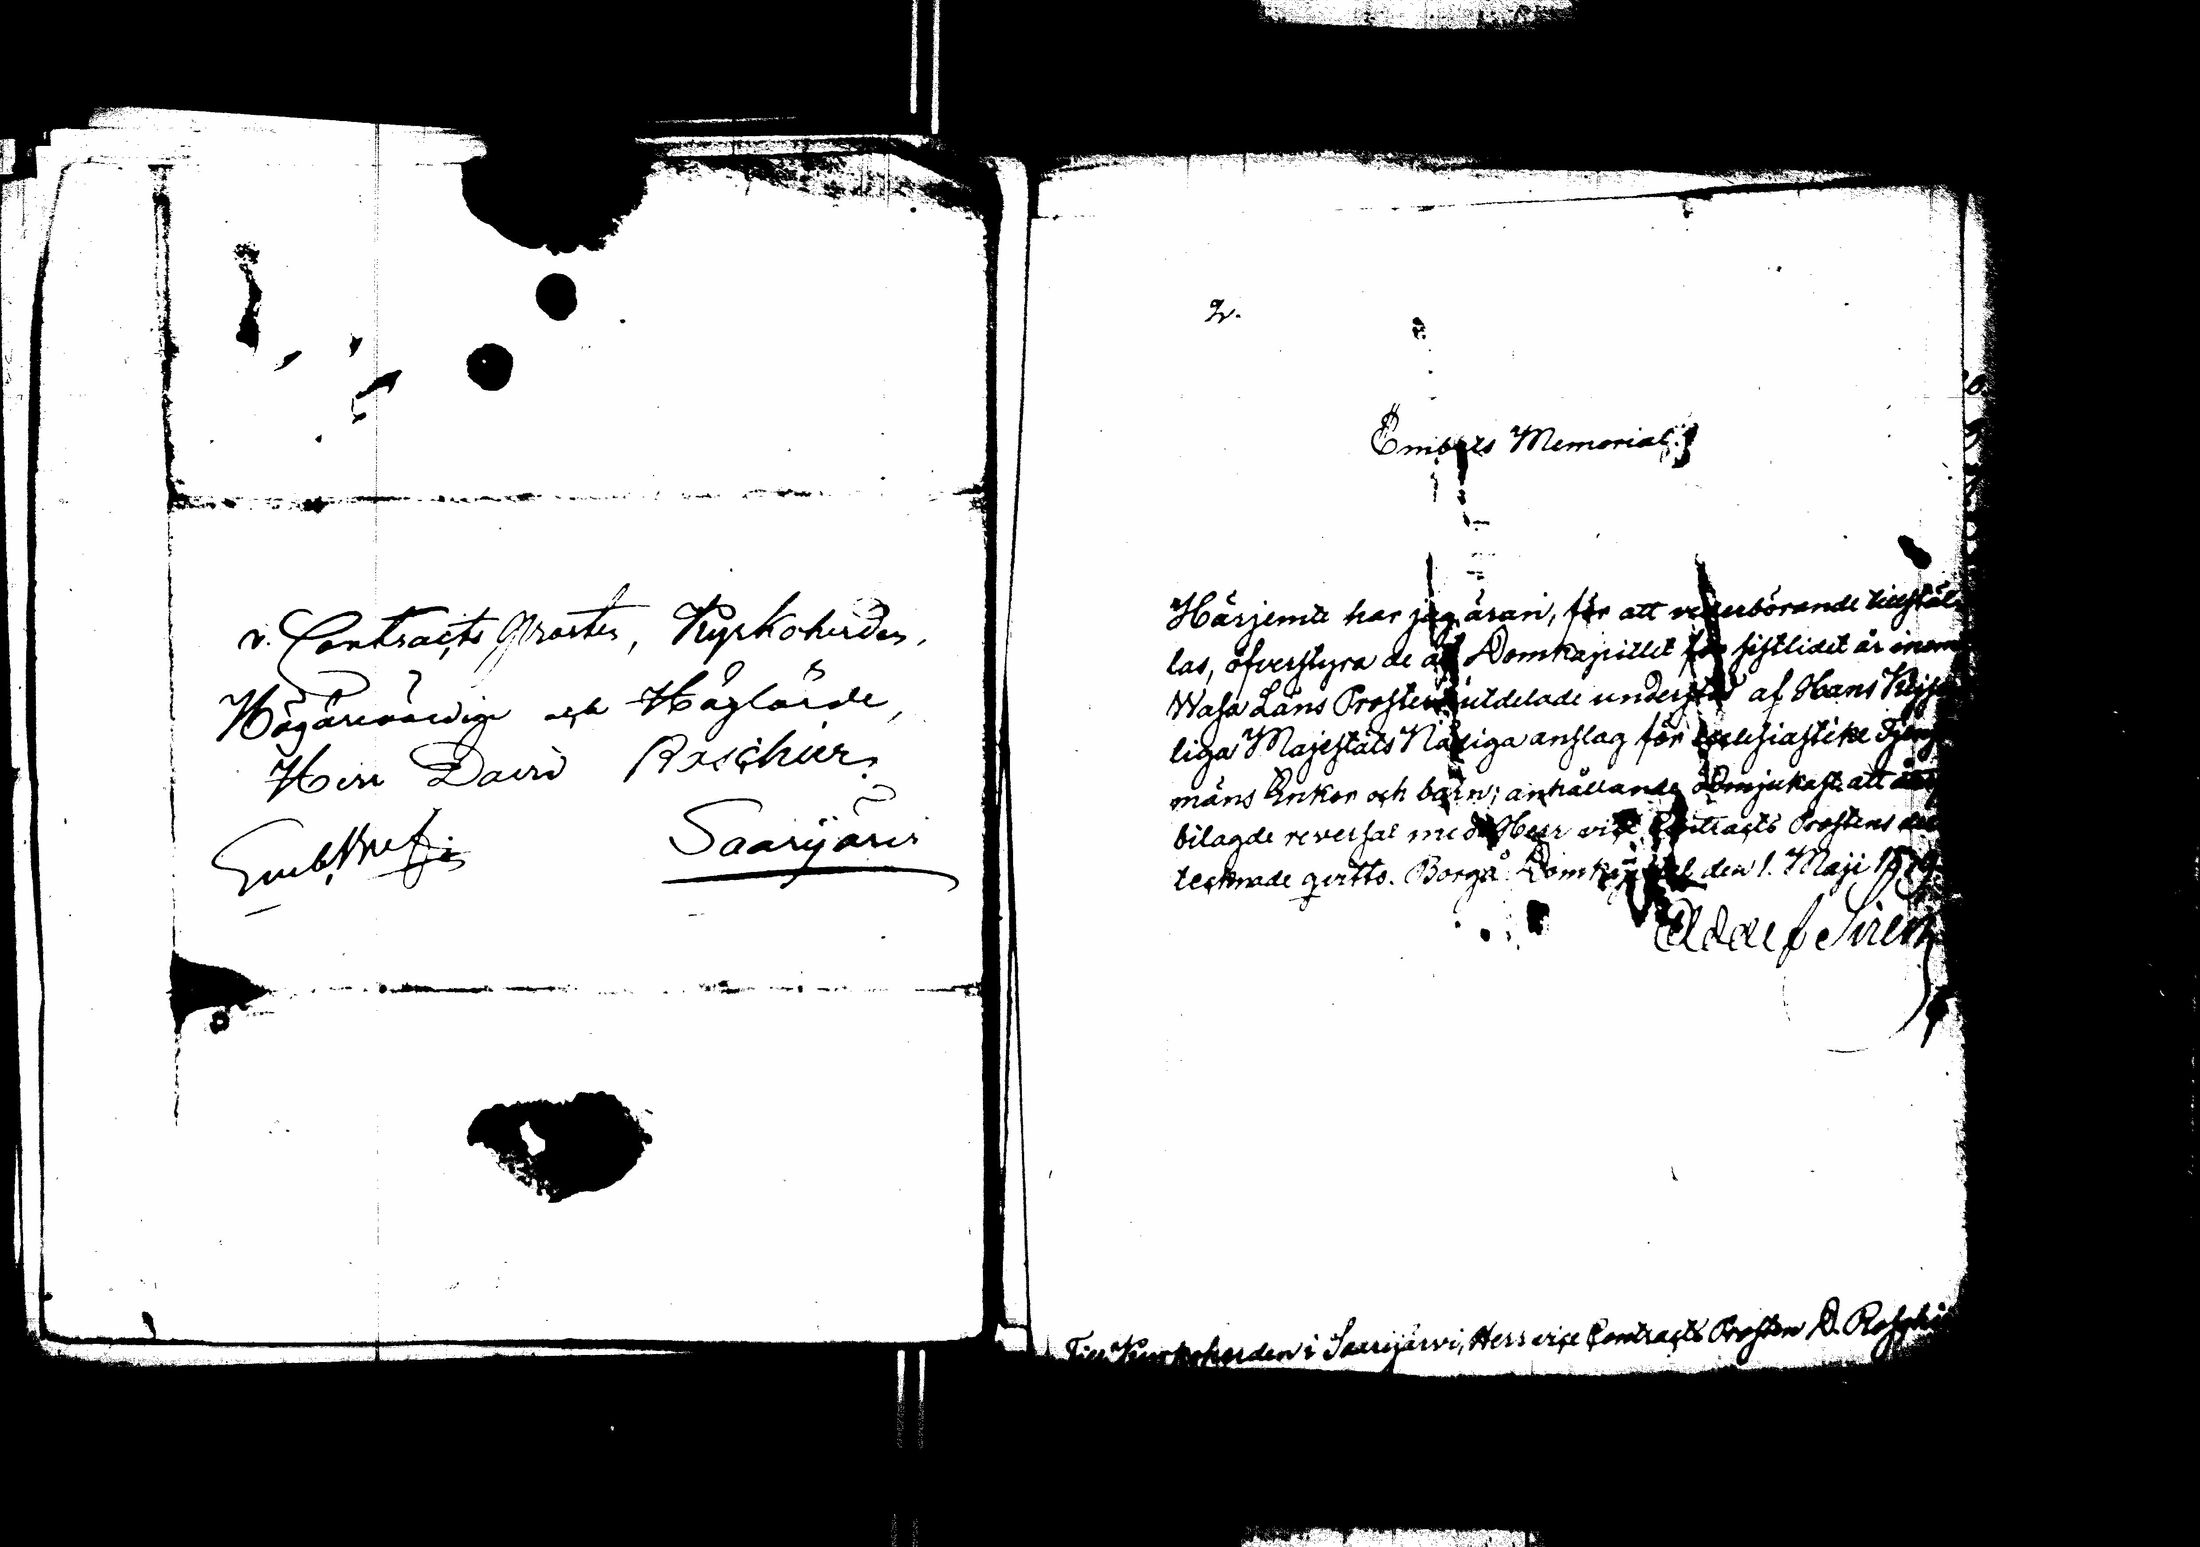 v. Contracts Prosten, Kyrkoherden,
Högärevördige och Höglärde,
Herr David Roschier.
Saarijärvi
2.
Embets Memorial;
Härjemte har jag äran, för att vederbörande tillstäl-
las, öfverstyra de af Domkapitlet för sistlidet år inom
Wasa Läns Prosteri utdelade understöd af Hans Kejser-
liga Majestäts Nådiga anslag för ecclesiastike Tjenste-
mäns Enkor och barn; anhållande ödmjukast att
bilagde reversal med Herr vice Contracts Prostens
tecknade qvitto. Borgå Domkapitel den 1. Maji
Adolf Siren
Till Kyrkoherden i Saarijärvi, Herr vice Contracts Prosten D. Roschier